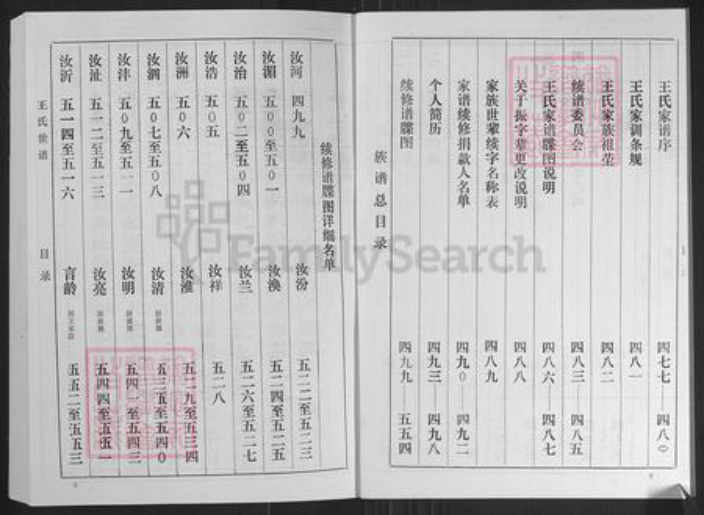 族谱总目录
王氏家谱序 四七七 四八〇
王氏家训条规 四八一
王氏家族祖茔 四八二
续谱委员会 四八三——四八五
王氏家谱牒图说明 四八六——四八七
关于振字辈更改说明 四八八
家族世辈续字名称表 四八九
家谱续修捐款人名单 四九〇 四九二
个人简历 四九三——四九八
续修谱牒图 四九九——五五四
续修谱牒图详细名单
汝河 四九九 汝汾 五二二至五二三
汝湄 五〇〇至五〇一 汝涣 五二四至五二五
汝治 五〇二至五〇四 汝兰 五二六至五二七
汝浩 五〇五 汝祥 五二八
汝洲 五〇六 汝淮 五二九至五三四
汝泗 五〇七至五〇八 汝清 五三五至五四〇
汝沣 五〇九至五一一 汝明 五四一至五四三
汝沚 五一二至五一三 汝亮 五四四至五五一
汝沂 五一四至五一六 言龄 五五二至五五三
王氏世谱 目录
FamilySearch